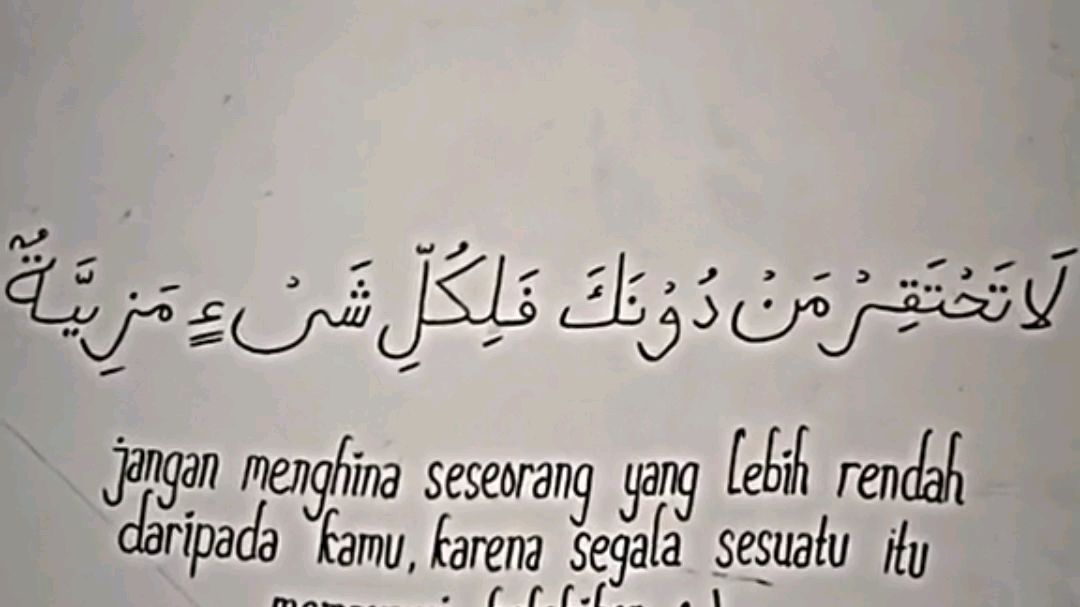 لَا تَحْتَقِرْ مَنْ دُوْنَكَ فَلِكُلِّ شَىْءٍ مَزِيَّةٌ
jangan menghina seseorang yang lebih rendah
daripada kamu, karena segala sesuatu itu